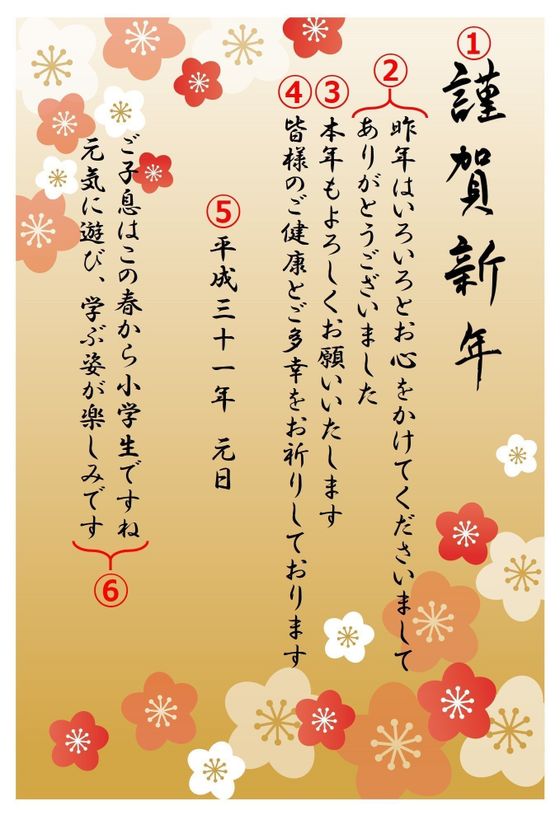 ①
謹賀新年
②
昨年はいろいろとお心をかけてくださいまして
ありがとうございました
③
本年もよろしくお願いいたします
④
皆様のご健康とご多幸をお祈りしております
⑤
平成三十一年 元日
ご子息はこの春から小学生ですね
元気に遊び、学ぶ姿が楽しみです
⑥